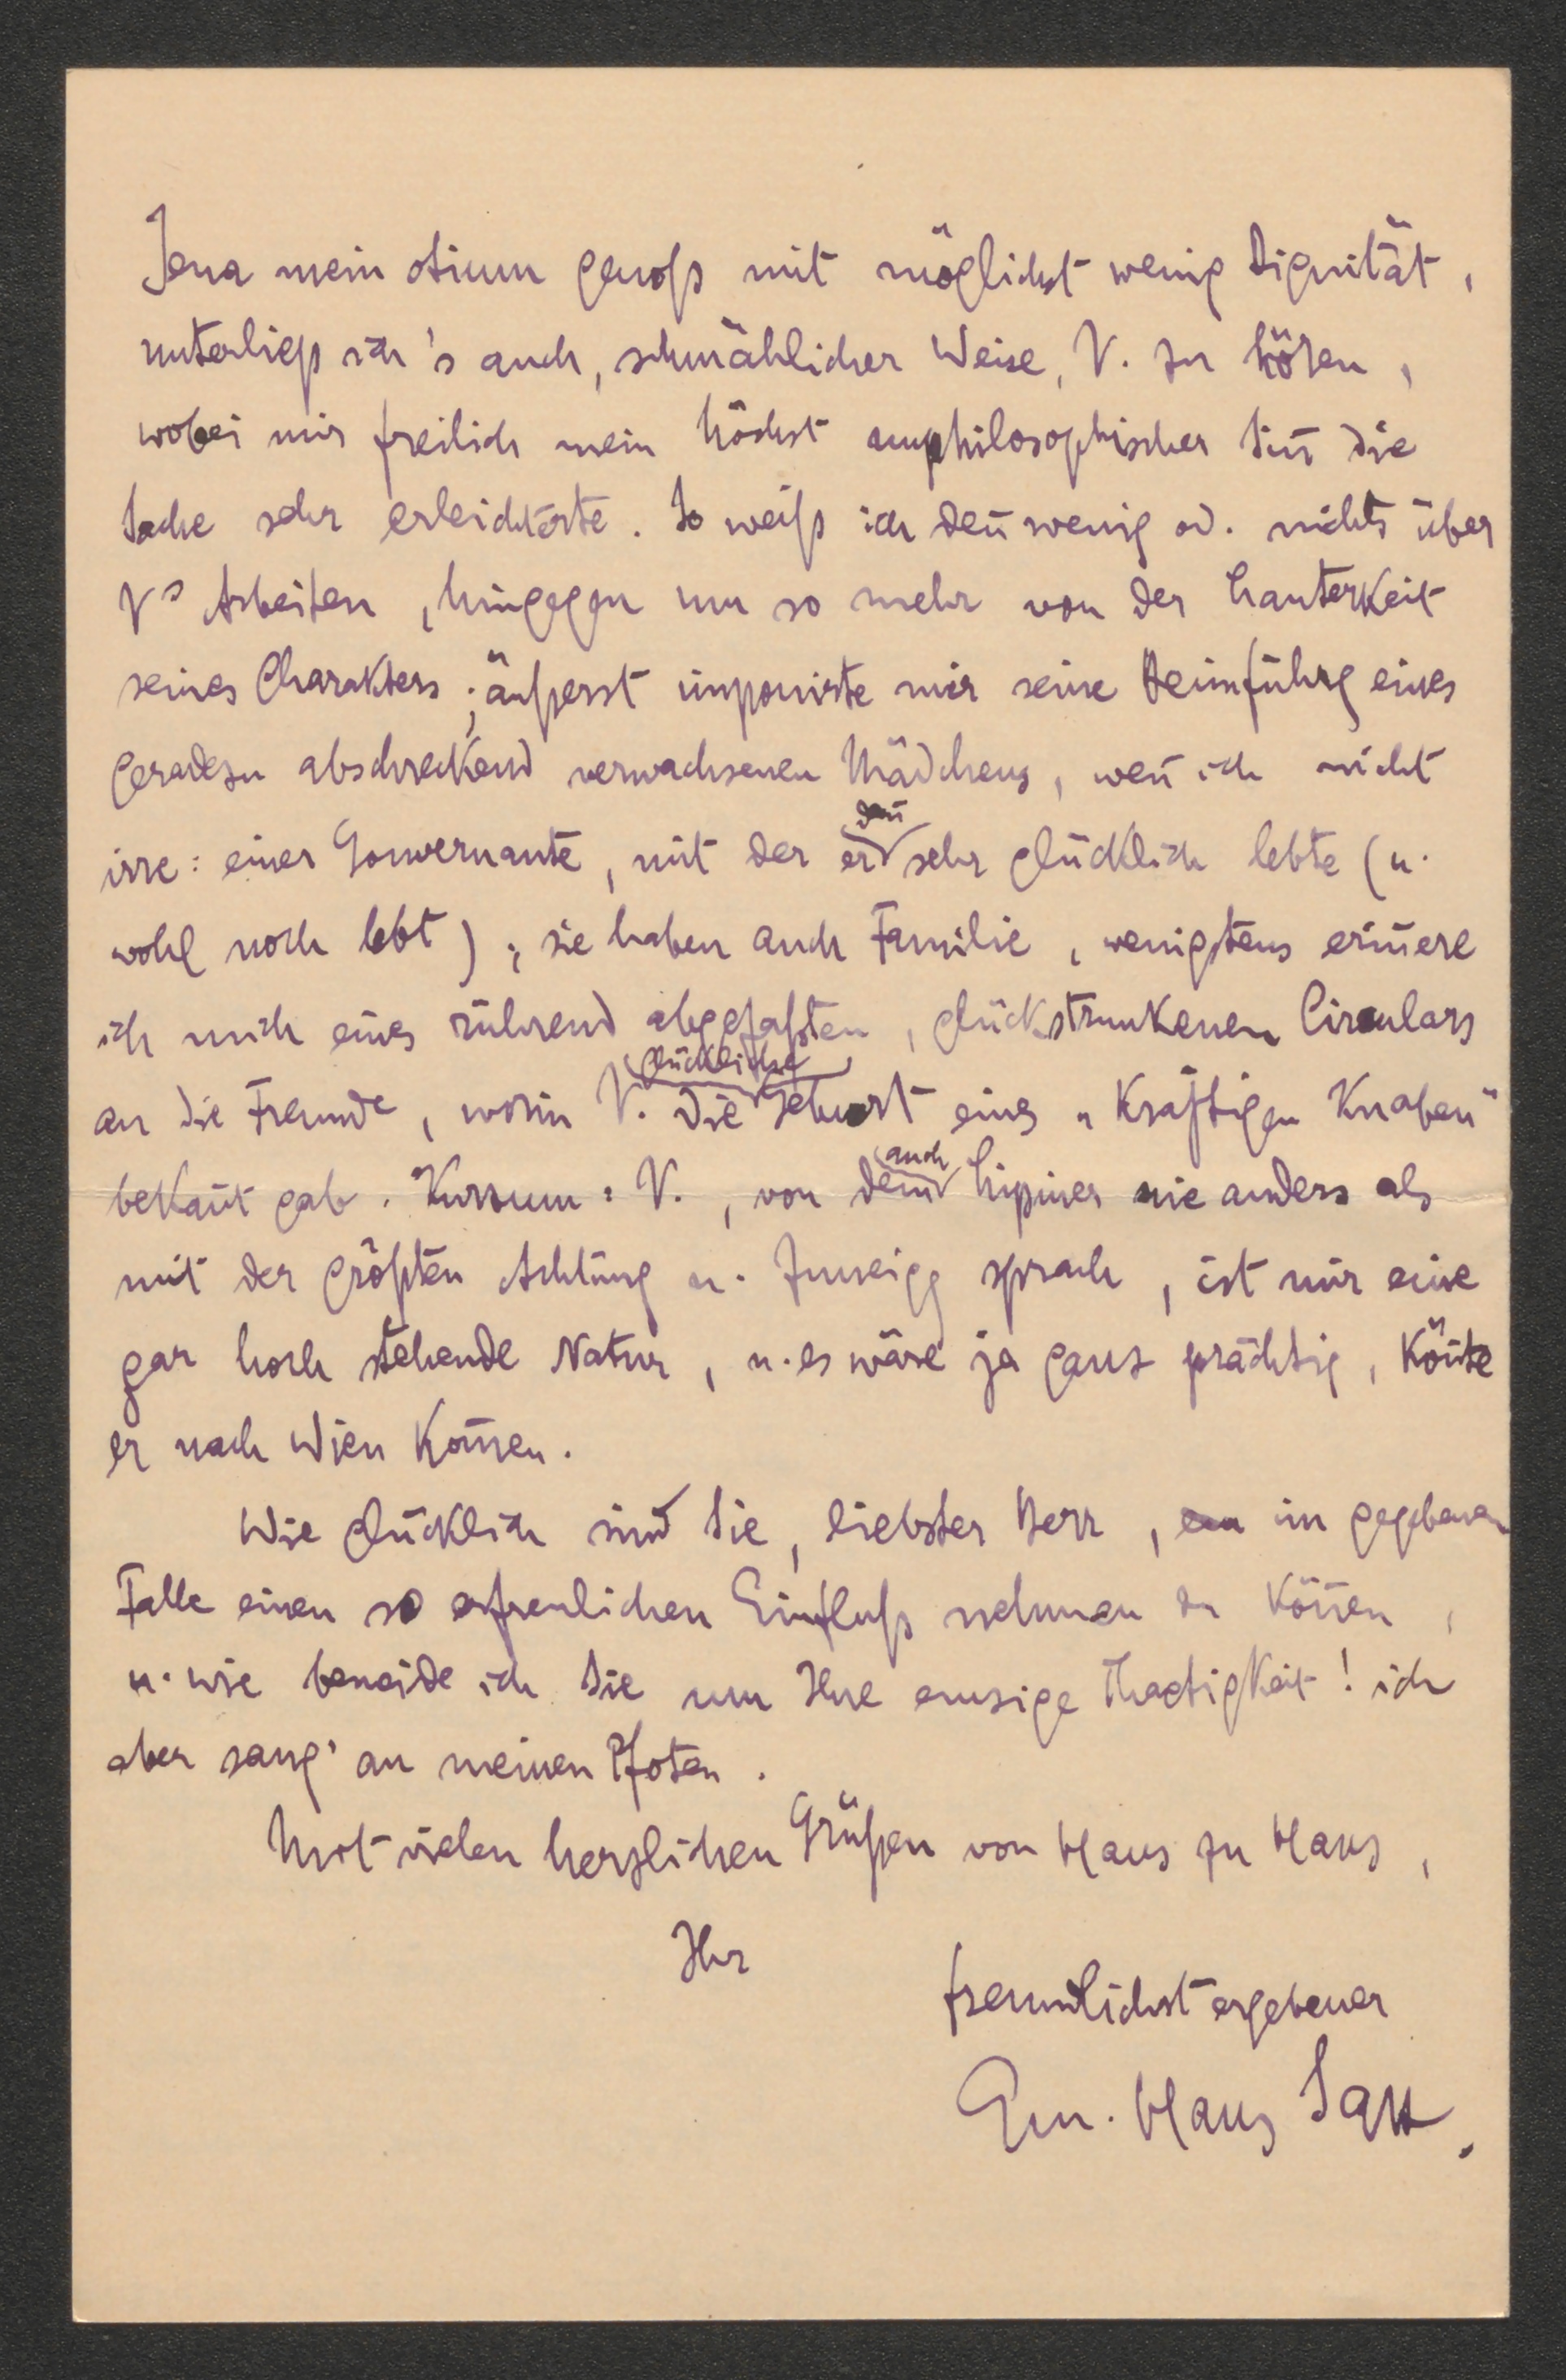 Jena mein otium genoß mit möglichst wenig Dignität,
unterließ ich's auch, schmählicher Weise, V. zu hören,
wobei mir freilich mein höchst unphilosophischer Sin̄ die
Sache sehr erleichterte. So weiß ich den̄ wenig od. nichts über
Vs Arbeiten, hingegen um so mehr von der Lauterkeit
seines Charakters; äußerst imponirte mir seine Heimführg eines
geradezu abschreckend verwachsenen Mädchens, wen̄ ich nicht
irre: einer Gouvernante, mit der er dan̄ sehr glücklich lebte (u.
wohl noch lebt); sie haben auch Familie, wenigstens erin̄ere
ich mich eines rührend abgefaßten, glückstrunkenen Circulars
an die Freunde, worin V. die glückliche Geburt eines „Kräftigen Knaben"
bekan̄t gab. Kurzum: V., von dem auch Lipiner nie anders als
mit der größten Achtung u. Zuneigg sprach, ist mir eine
gar hoch stehende Natur, u. es wäre ja ganz prächtig, kön̄te
er nach Wien kom̄en.
Wie glücklich sind Sie, liebster Herr, im gegebenen
Falle einen so erfreulichen Einfluß nehmen zu kön̄en,
u. wie beneide ich Sie um Ihre emsige Thaetigkeit! ich
aber saug' an meinen Pfoten.
Mit vielen herzlichen Grüßen von Haus zu Haus,
Ihr
freundlichst ergebener
Em. Hans Sax.